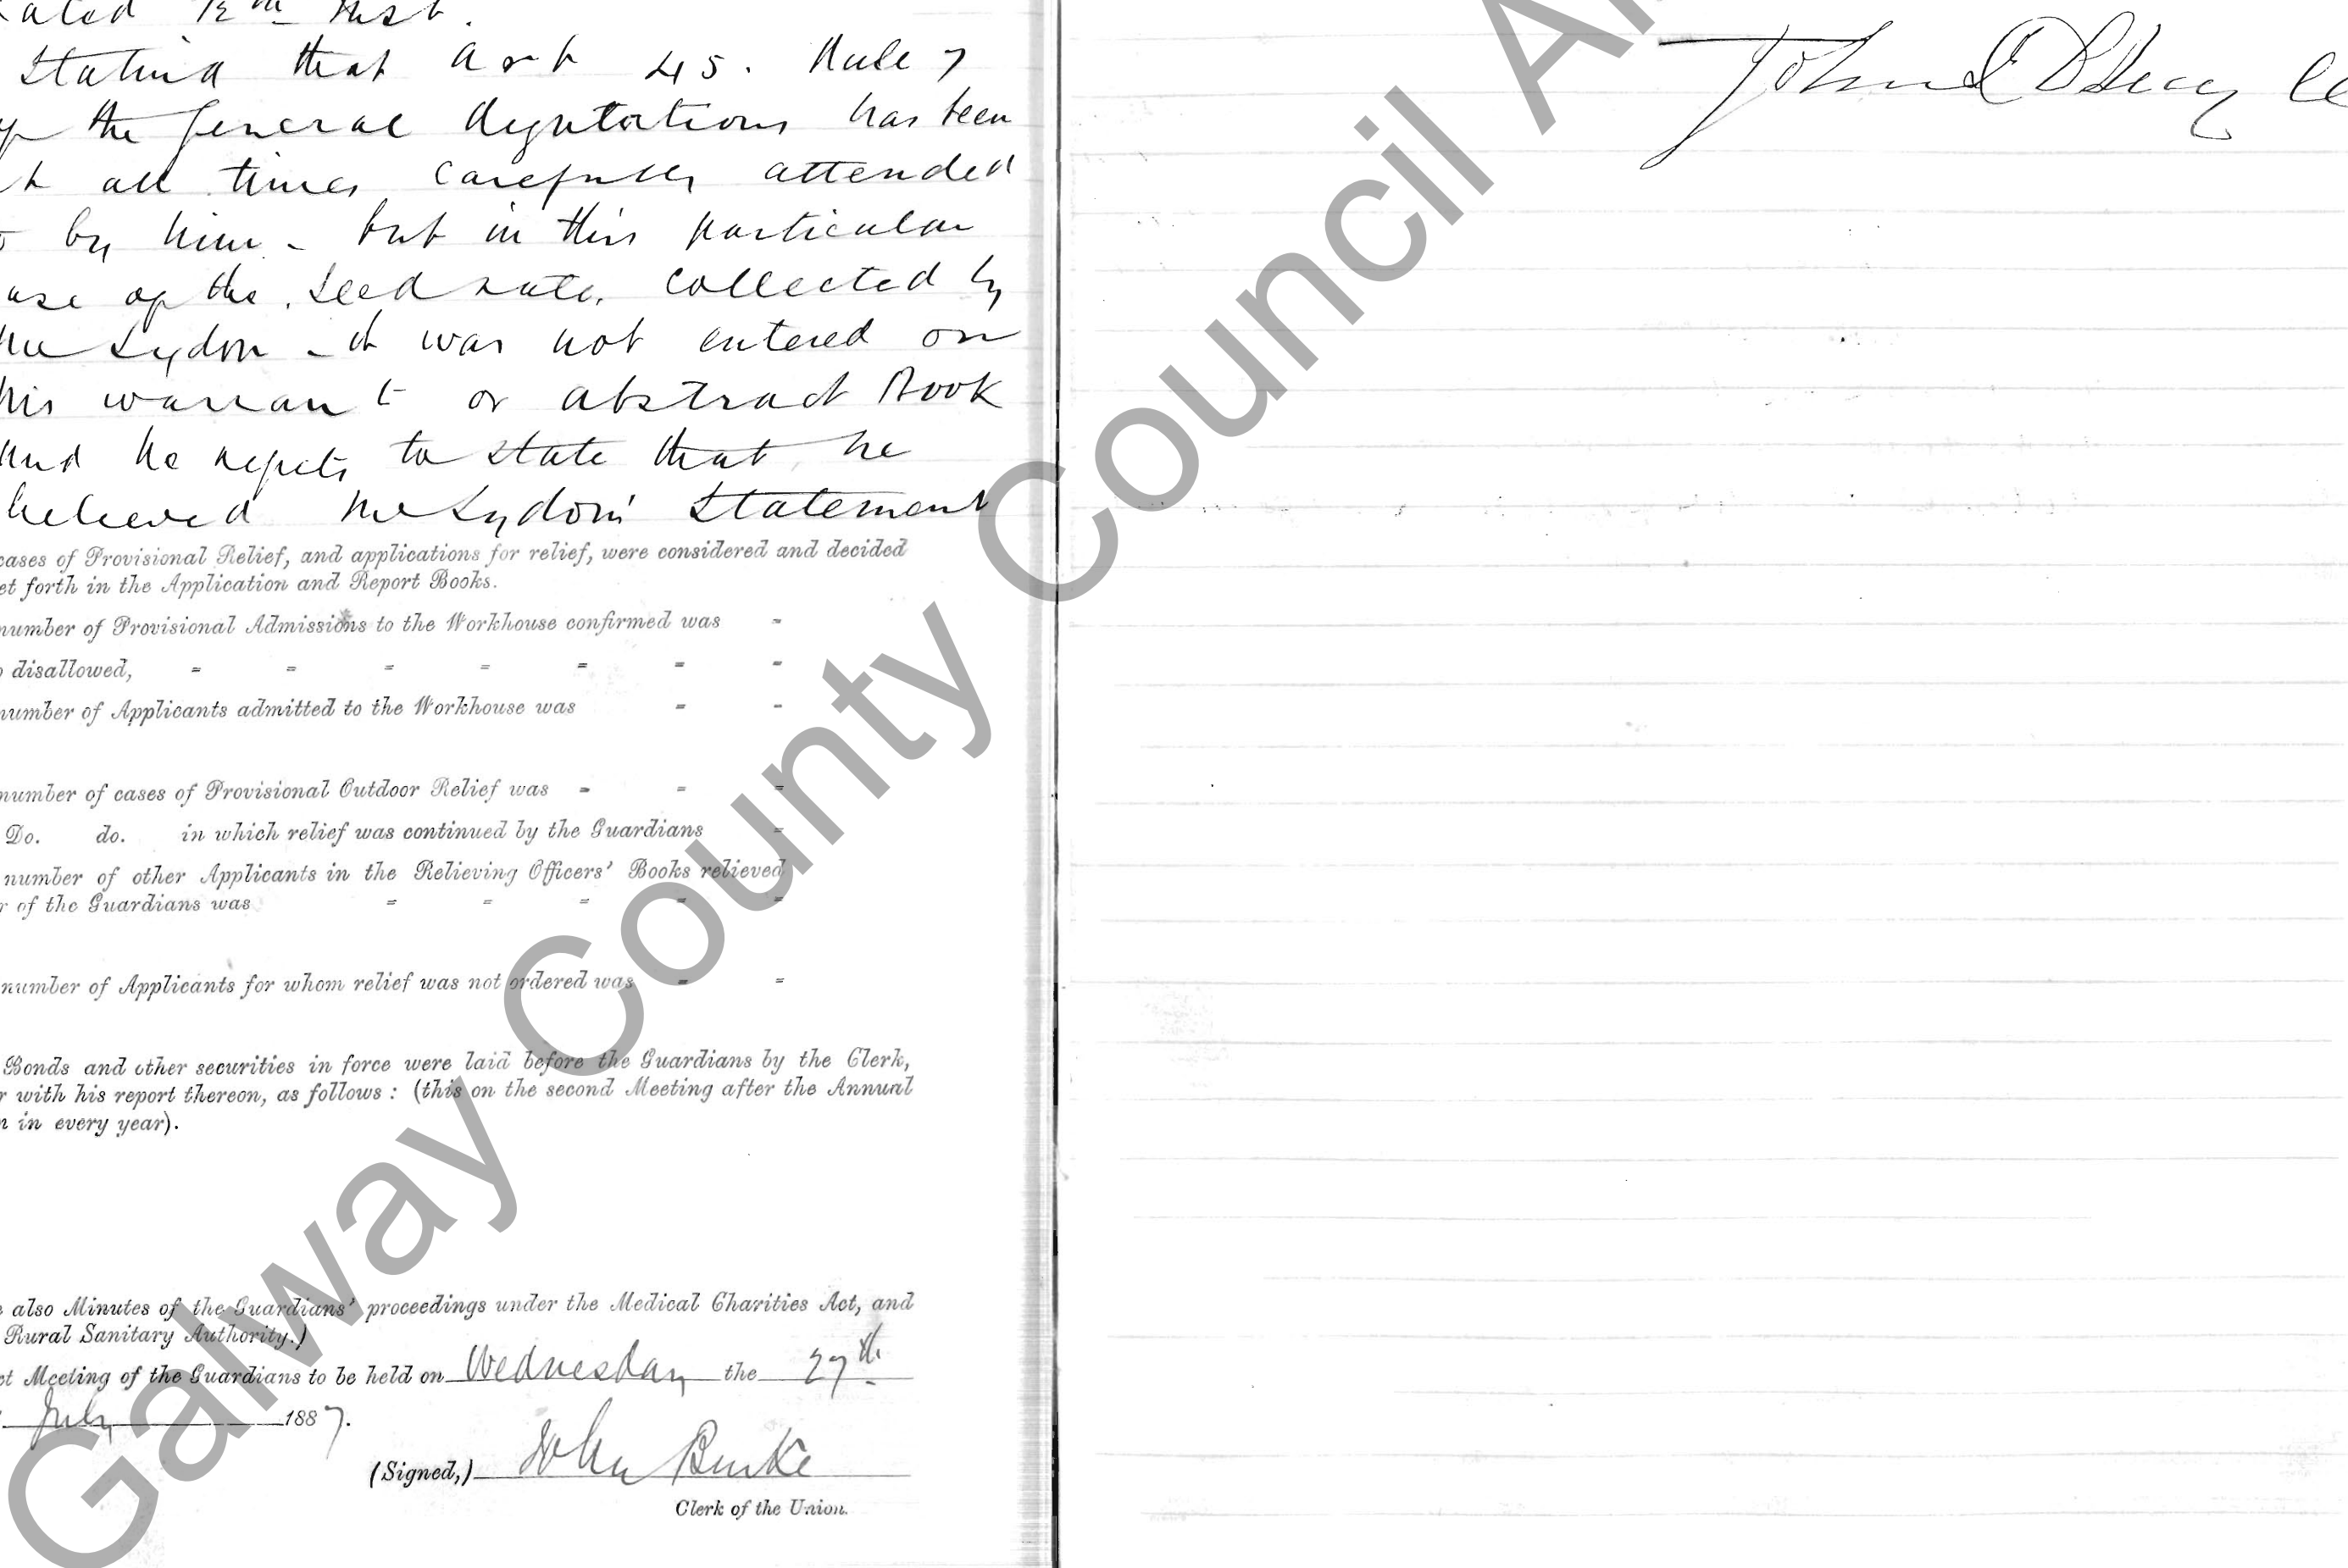 ated 12th Inst.
Stating that Art 45. Rule 7
of the General Regulations has been
at all times carefully attended
by him - but in this particular
ase of the Seed rate, collected by
Mr Lydon - it was not entered on
his warrant or abstract Book
and he regrets to state that he
believed Mr Lydon's Statement
cases of Provisional Relief, and applications for relief, were considered and decided
et forth in the Application and Report Books.
number of Provisional Admissions to the Workhouse confirmed was -
o disallowed, - - - - - - -
number of Applicants admitted to the Workhouse was - -
number of cases of Provisional Outdoor Relief was - - -
Do. do. in which relief was continued by the Guardians -
number of other Applicants in the Relieving Officers' Books relieved
r of the Guardians was - - - - -
number of Applicants for whom relief was not ordered was - -
Bonds and other securities in force were laid before the Guardians by the Clerk,
r with his report thereon, as follows : (this on the second Meeting after the Annual
n in every year).
e also Minutes of the Guardians' proceedings under the Medical Charities Act, and
Rural Sanitary Authority.)
xt Meeting of the Guardians to be held on Wednesday the 27th
July 1887.
(Signed,) John Burke
Clerk of the Union.
John
Galway County Council A